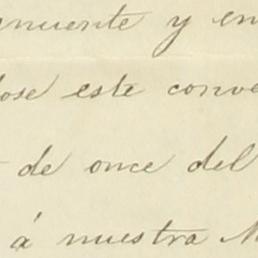 nuente y en
dose este conve
de once del
á nuestra M